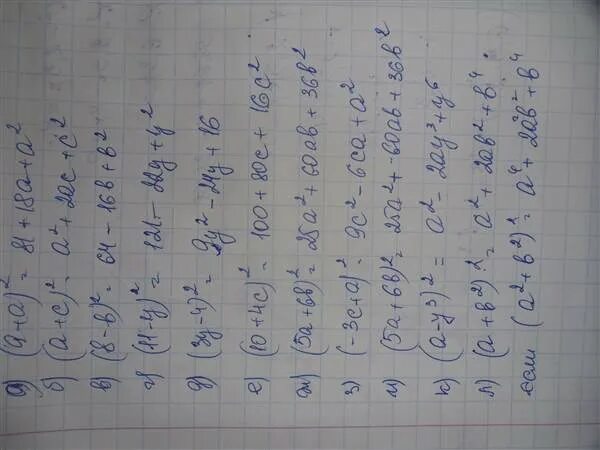 а) (9+a)² = 81+18a+a²
б) (a+c)² = a²+2ac+c²
в) (8-в)² = 64-16в+в²
г) (11-y)² = 121-22y+y²
д) (3y-4)² = 9y²-24y+16
е) (10+4c)² = 100+80c+16c²
ж) (5a+6в)² = 25a²+60aв+36в²
з) (-3c+a)² = 9c²-6ca+a²
и) (5a+6в)² = 25a²+-60aв+36в²
к) (a-y³)² = a²-2ay³+y⁶
л) (a+в²)² = a²+2aв²+в⁴
если (a²+в²)² = a⁴+2a²в²+в⁴